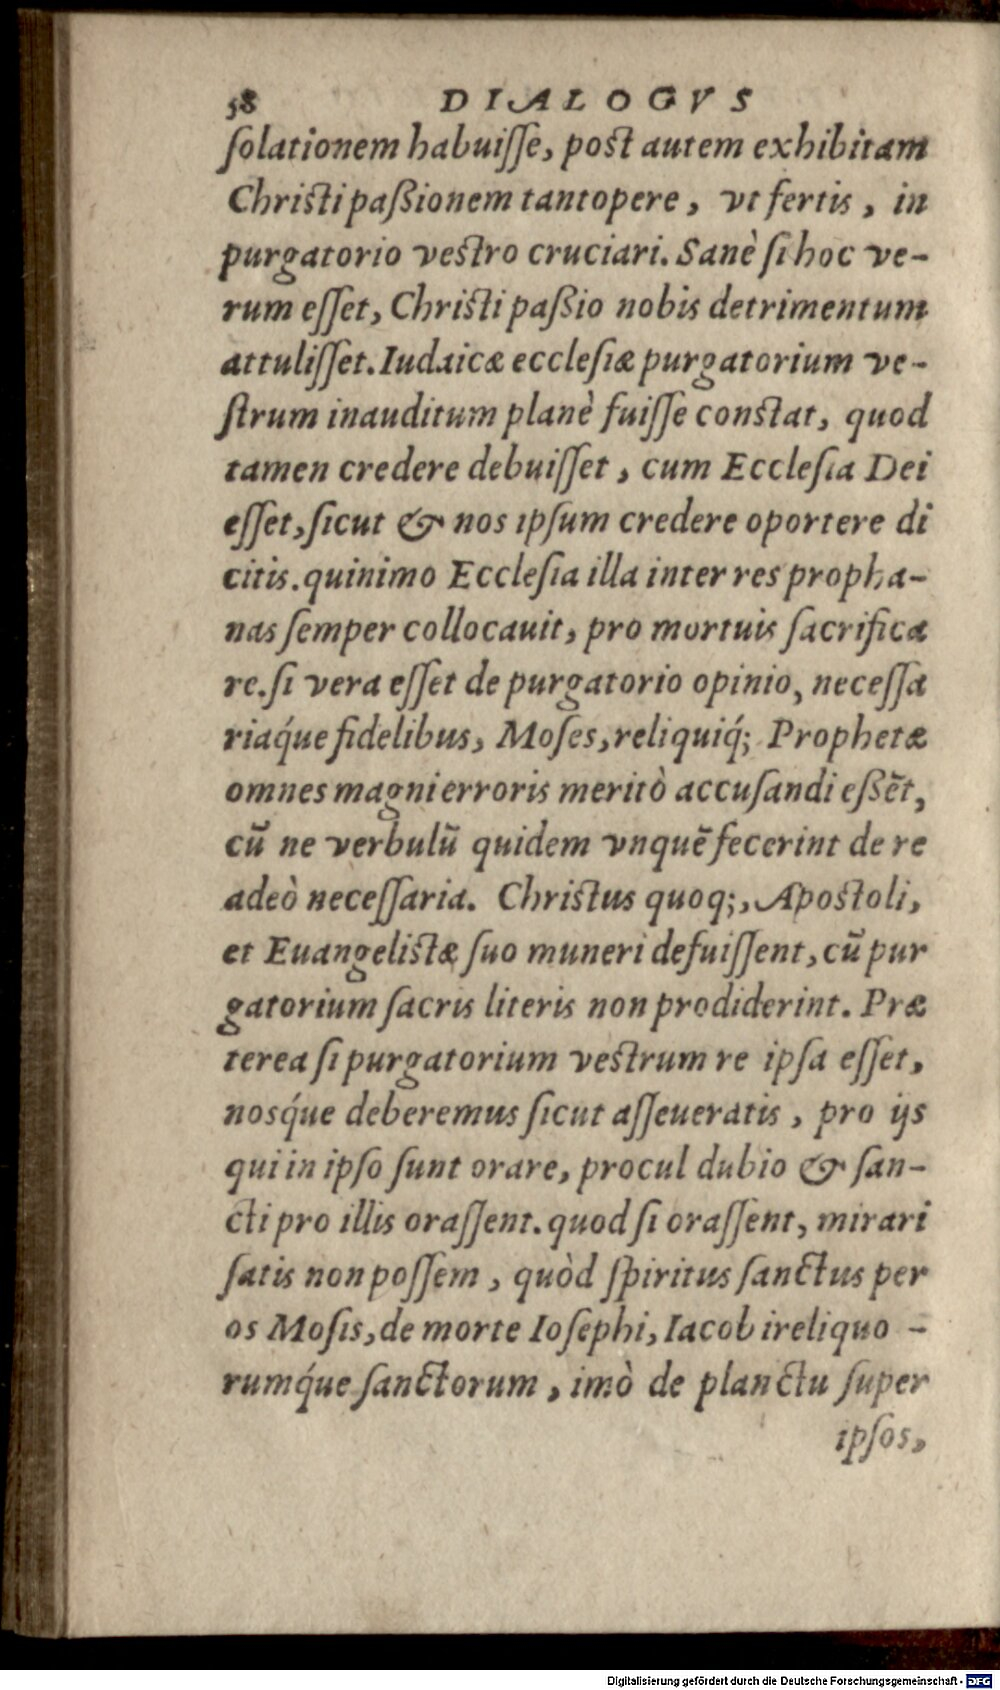 58 DIALOGVS
ſolationem habuiſſe, poſt autem exhibitam
Chriſti paßionem tantopere, vt fertis, in
purgatorio veſtro cruciari. Sanè ſi hoc ve-
rum eſſet, Chriſti paßio nobis detrimentum
attuliſſet. Iudaicæ eccleſiæ purgatorium ve-
ſtrum inauditum planè fuiſſe conſtat, quod
tamen credere debuiſſet, cum Eccleſia Dei
eſſet, ſicut & nos ipſum credere oportere di
citis. quinimo Eccleſia illa inter res propha-
nas ſemper collocauit, pro mortuis ſacrifica
re. ſi vera eſſet de purgatorio opinio, neceſſa
riaq́ue fidelibus, Moſes, reliquiq́; Prophetæ
omnes magni erroris meritò accuſandi eßēt,
cū ne verbulū quidem vnquē fecerint de re
adeò neceſſaria. Chriſtus quoq;, Apoſtoli,
et Euangeliſtæ ſuo muneri defuiſſent, cū pur
gatorium ſacris literis non prodiderint. Præ
terea ſi purgatorium veſtrum re ipſa eſſet,
nosq́ue deberemus ſicut aſſeueratis, pro ijs
qui in ipſo ſunt orare, procul dubio & ſan-
cti pro illis oraſſent. quod ſi oraſſent, mirari
ſatis non poſſem, quòd ſpiritus ſanctus per
os Moſis, de morte Ioſephi, Iacob ireliquo -
rumq́ue ſanctorum, imò de planctu ſuper
ipſos,
Digitalisierung gefördert durch die Deutsche Forschungsgemeinschaft - DFG